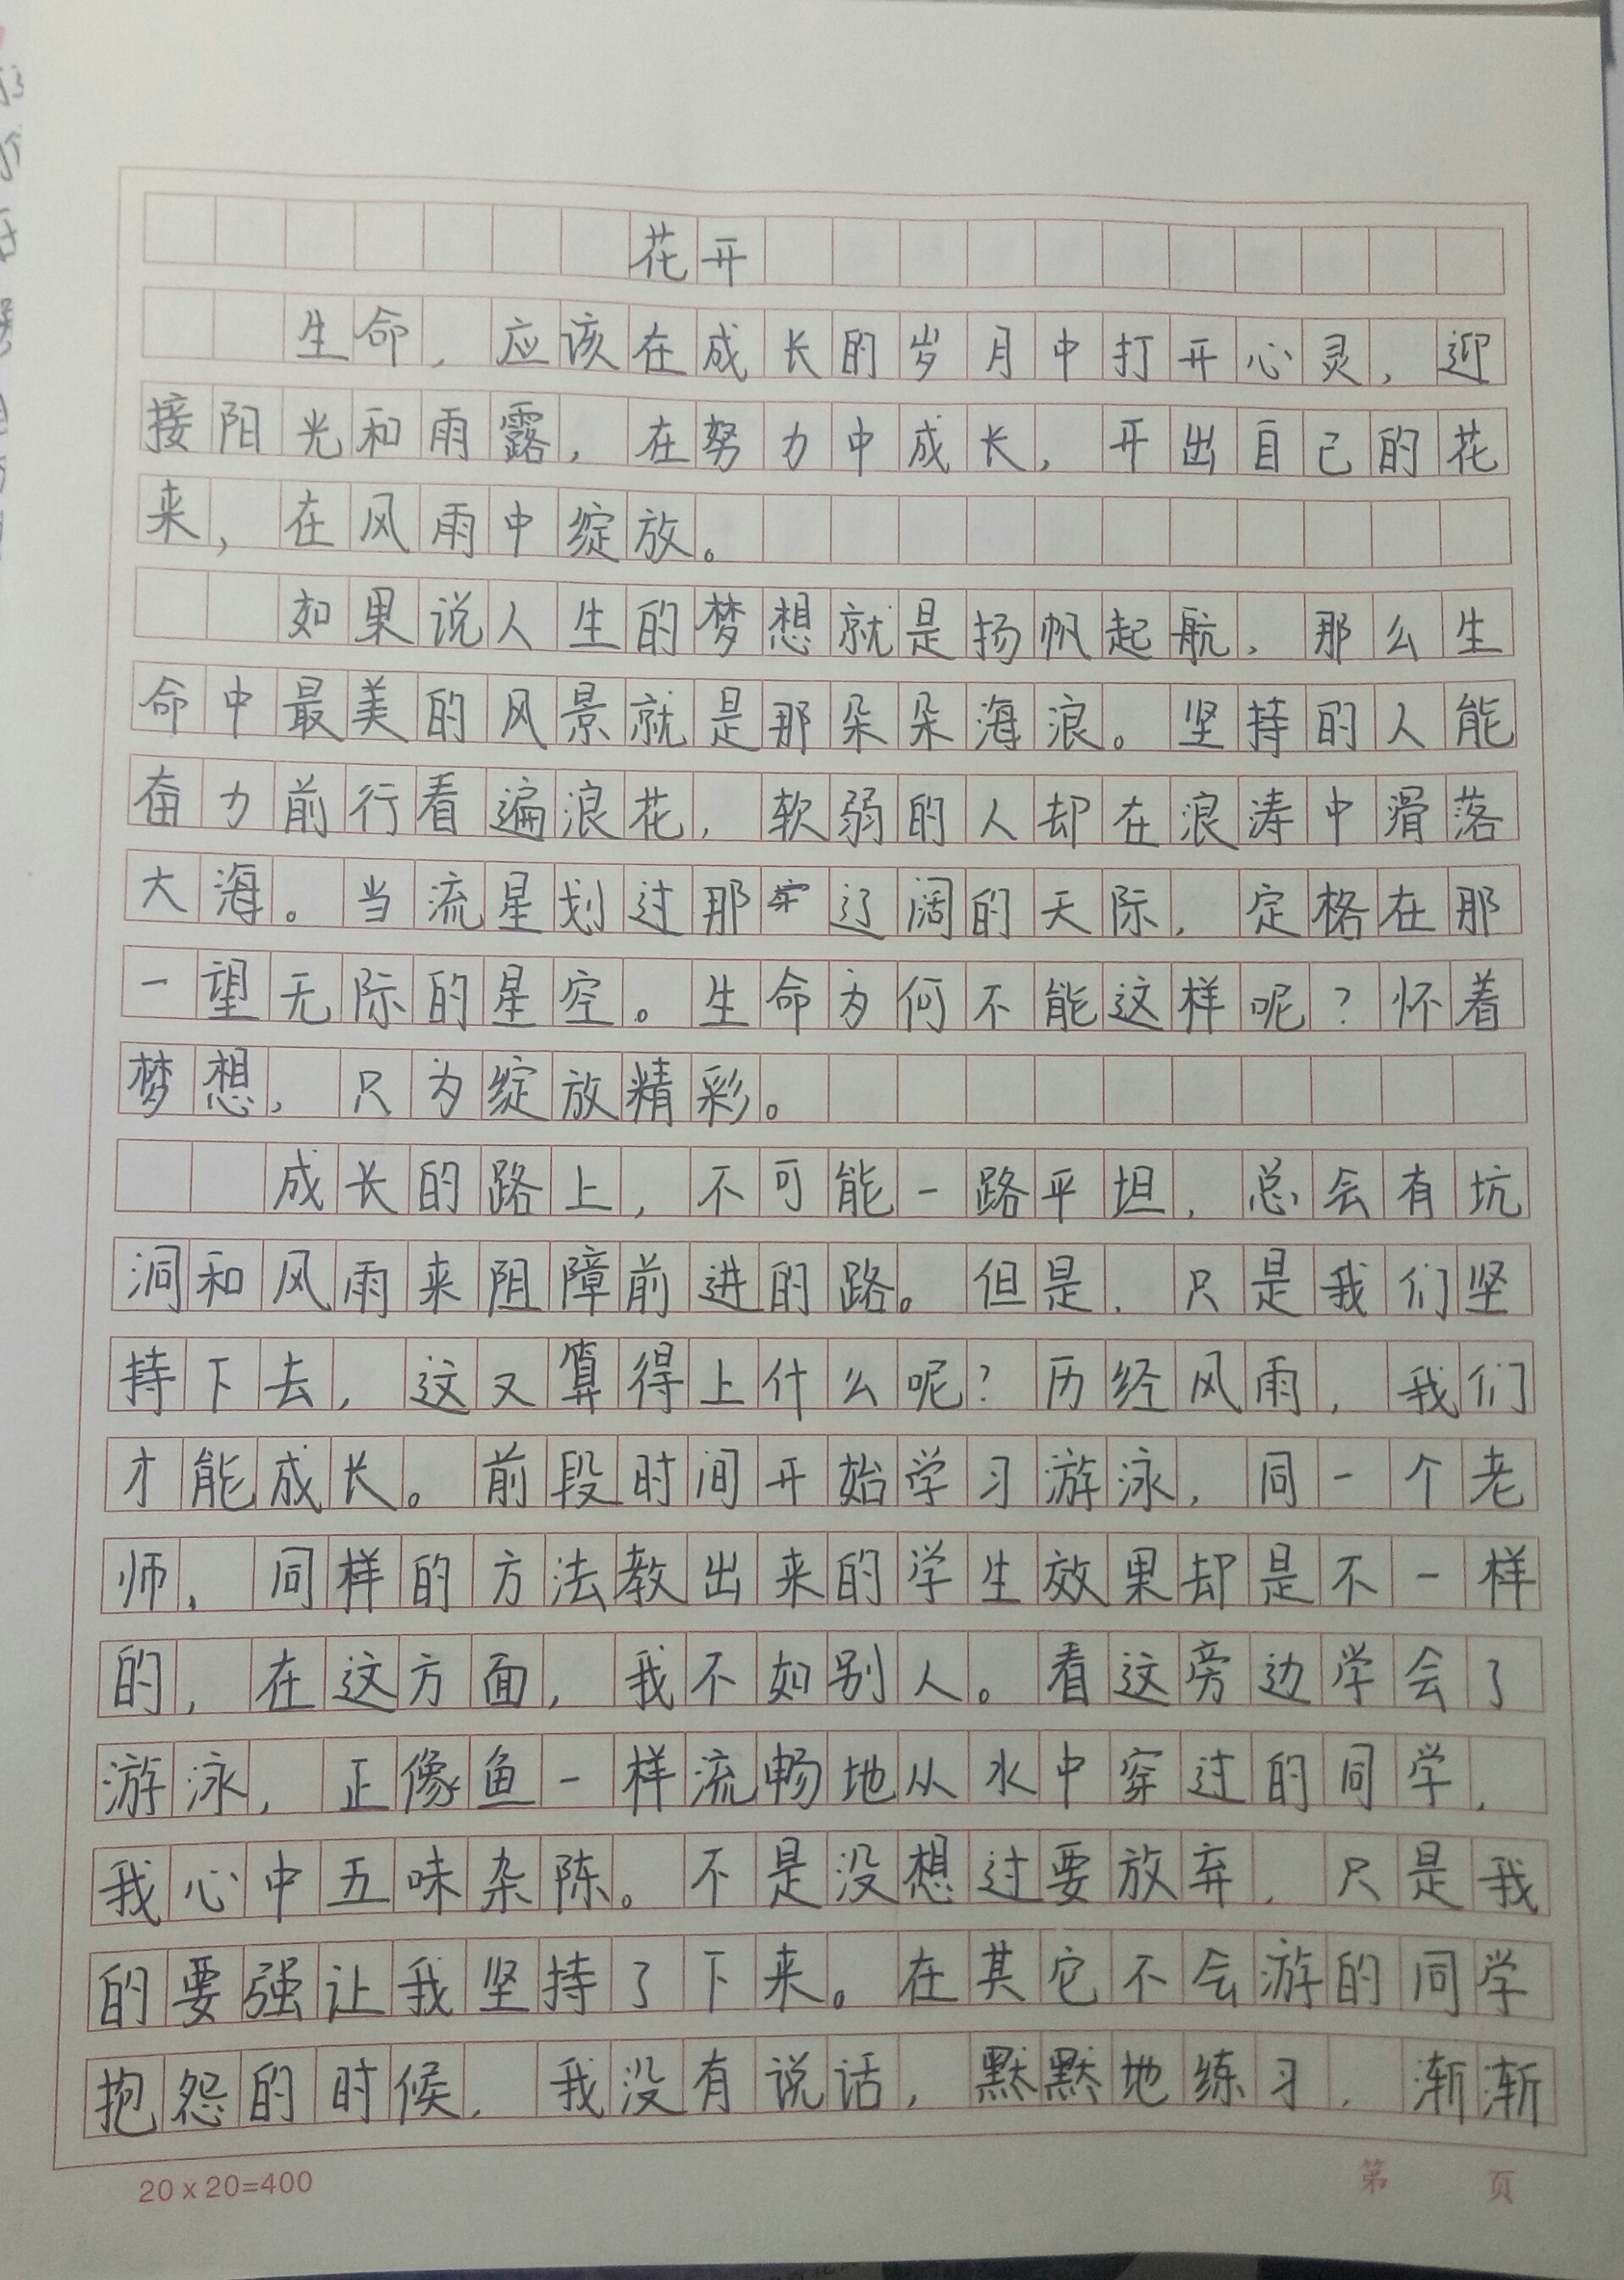 花开
生命，应该在成长的岁月中打开心灵，迎
接阳光和雨露，在努力中成长，开出自己的花
来，在风雨中绽放。
如果说人生的梦想就是扬帆起航，那么生
命中最美的风景就是那朵朵海浪。坚持的人能
奋力前行看遍浪花，软弱的人却在浪涛中滑落
大海。当流星划过那辽阔的天际，定格在那
一望无际的星空。生命为何不能这样呢？怀着
梦想，只为绽放精彩。
成长的路上，不可能一路平坦，总会有坑
洞和风雨来阻障前进的路。但是，只是我们坚
持下去，这又算得上什么呢？历经风雨，我们
才能成长。前段时间开始学习游泳，同一个老
师，同样的方法教出来的学生效果却是不一样
的，在这方面，我不如别人。看这旁边学会了
游泳，正像鱼一样流畅地从水中穿过的同学，
我心中五味杂陈。不是没想过要放弃，只是我
的要强让我坚持了下来。在其它不会游的同学
抱怨的时候，我没有说话，默默地练习，渐渐
20×20=400
第 页